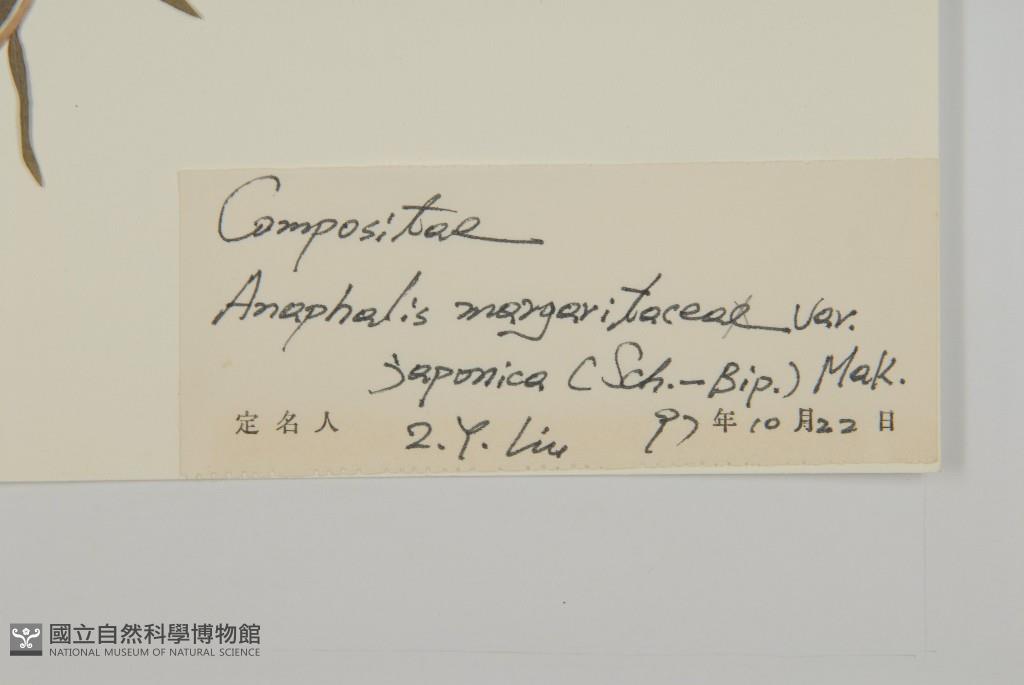 Compositae
Anaphalis margaritacea var.
japonica (Sch.-Bip.) Mak.
定名人 Z. Y. Liu 97年10月22日
國立自然科學博物館
NATIONAL MUSEUM OF NATURAL SCIENCE